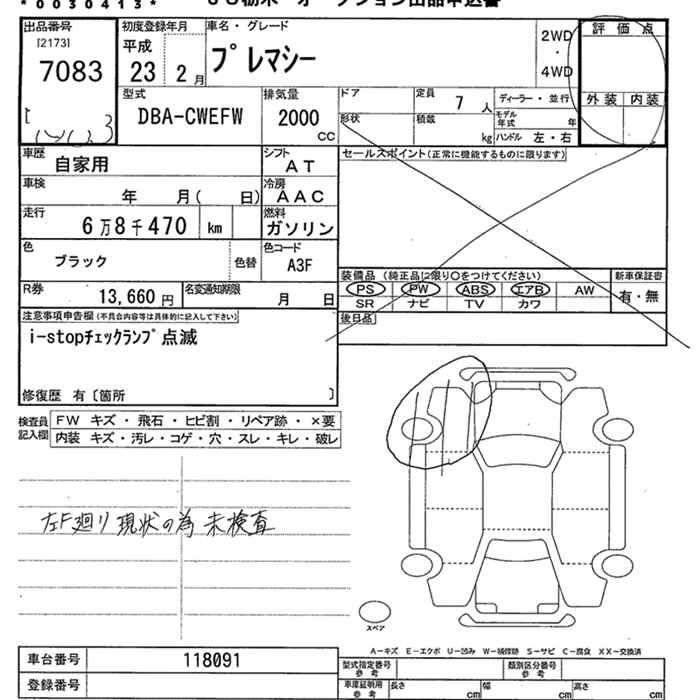 *0030413*
出品番号
[2173]
7083
初度登録年月
平成
23 2月
車名・グレード
プレマシー
2WD
・
4WD
評価点
外装 内装
型式
DBA-CWEFW
排気量
2000
CC
ドア
形状
定員
7人
積載
kg
ディーラー・並行
モデル年式 年
ハンドル 左・右
車歴
自家用
シフト
AT
セールスポイント(正常に機能するものに限ります)
車検
年 月( 日)
冷房
AAC
走行
6万8千470 km
燃料
ガソリン
色
ブラック
色替
色コード
A3F
装備品 (純正品に限り○をつけてください)
PS PW ABS エアB AW
SR ナビ TV カワ
新車保証書
有・無
R券
13,660円
名変通知期限
月 日
後日品
注意事項申告欄(不具合内容等は具体的に記入して下さい)
i-stopチェックランプ点滅
修復歴 有〔箇所 〕
検査員記入欄
FW キズ・飛石・ヒビ割・リペア跡・×要
内装 キズ・汚レ・コゲ・穴・スレ・キレ・破レ
左F廻り現状の為未検査
スペア
A-キズ E-エクボ U-凹み W-補修跡 S-サビ C-腐食 XX-交換済
車台番号
118091
登録番号
型式指定番号
参考
類別区分番号
参考
車庫証明用
参考
長さ cm 幅 cm 高さ cm